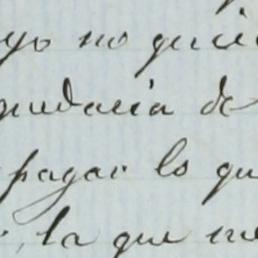 yo no quie
quedaria de
pagar lo qu
la que me